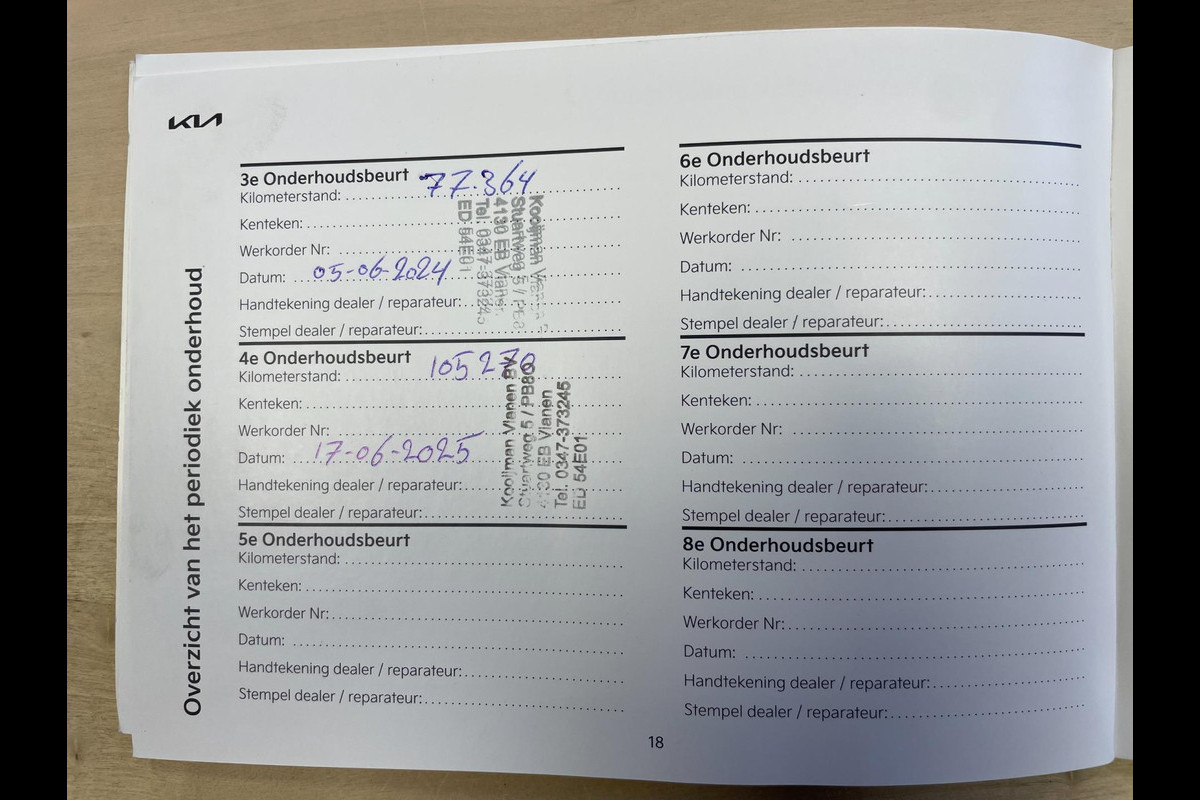 KIA
Overzicht van het periodiek onderhoud
3e Onderhoudsbeurt
Kilometerstand: 77.364
Kenteken:
Werkorder Nr:
Datum: 05-06-2024
Handtekening dealer / reparateur:
Stempel dealer / reparateur:
Kooijman
Stuartweg 5 /
4130 EB
Tel. 0347-373245
ED 54E01
4e Onderhoudsbeurt
Kilometerstand: 105270
Kenteken:
Werkorder Nr:
Datum: 17-06-2025
Handtekening dealer / reparateur:
Stempel dealer / reparateur:
Kooijman Vianen BV
Stuartweg 5 / PB80
4130 EB Vianen
Tel. 0347-373245
ED 54E01
5e Onderhoudsbeurt
Kilometerstand:
Kenteken:
Werkorder Nr:
Datum:
Handtekening dealer / reparateur:
Stempel dealer / reparateur:
6e Onderhoudsbeurt
Kilometerstand:
Kenteken:
Werkorder Nr:
Datum:
Handtekening dealer / reparateur:
Stempel dealer / reparateur:
7e Onderhoudsbeurt
Kilometerstand:
Kenteken:
Werkorder Nr:
Datum:
Handtekening dealer / reparateur:
Stempel dealer / reparateur:
8e Onderhoudsbeurt
Kilometerstand:
Kenteken:
Werkorder Nr:
Datum:
Handtekening dealer / reparateur:
Stempel dealer / reparateur:
18